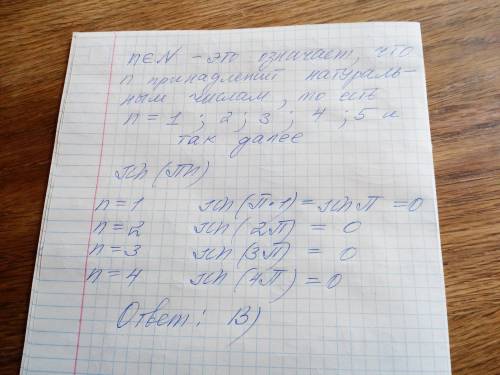 n∈N - это означает, что
n принадлежит натураль-
ным числам, то есть
n = 1 ; 2 ; 3 ; 4 ; 5 и
так далее
sin (πn)
n = 1 sin (π·1) = sin π = 0
n = 2 sin (2π) = 0
n = 3 sin (3π) = 0
n = 4 sin (4π) = 0
Ответ: В)